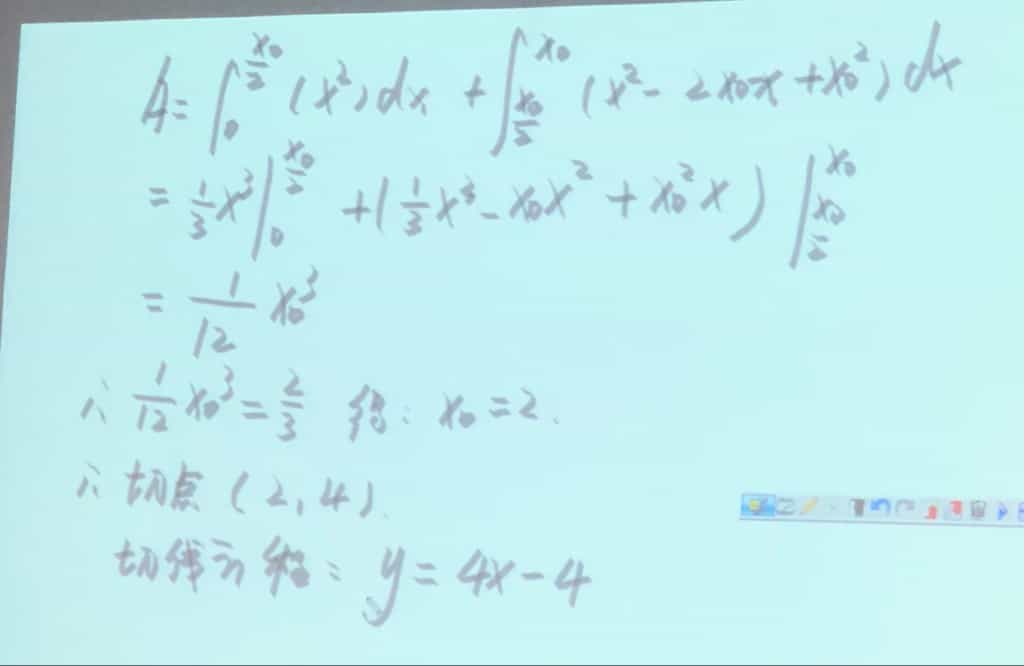 A = ∫₀^{x₀/2} (x²)dx + ∫_{x₀/2}^{x₀} (x² - 2x₀x + x₀²)dx
= 1/3 x³ |₀^{x₀/2} + (1/3 x³ - x₀x² + x₀²x) |_{x₀/2}^{x₀}
= 1/12 x₀³
∴ 1/12 x₀³ = 2/3 : x₀ = 2.
∴ 切点 (2, 4).
切线方程: y = 4x - 4